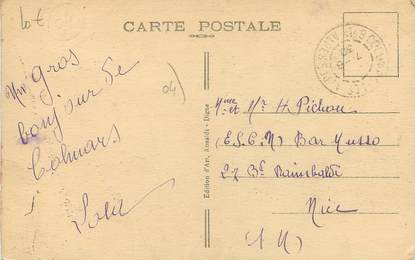 10€
CARTE POSTALE
04)
Un gros
bonjour de
Colmars
Mme et Mr H. Pichou
(E.S.C.N) Bar Musso
27 Bd Raimbaldi
Nice
(A M)
Edition d'Art, Ansaldi - Digne